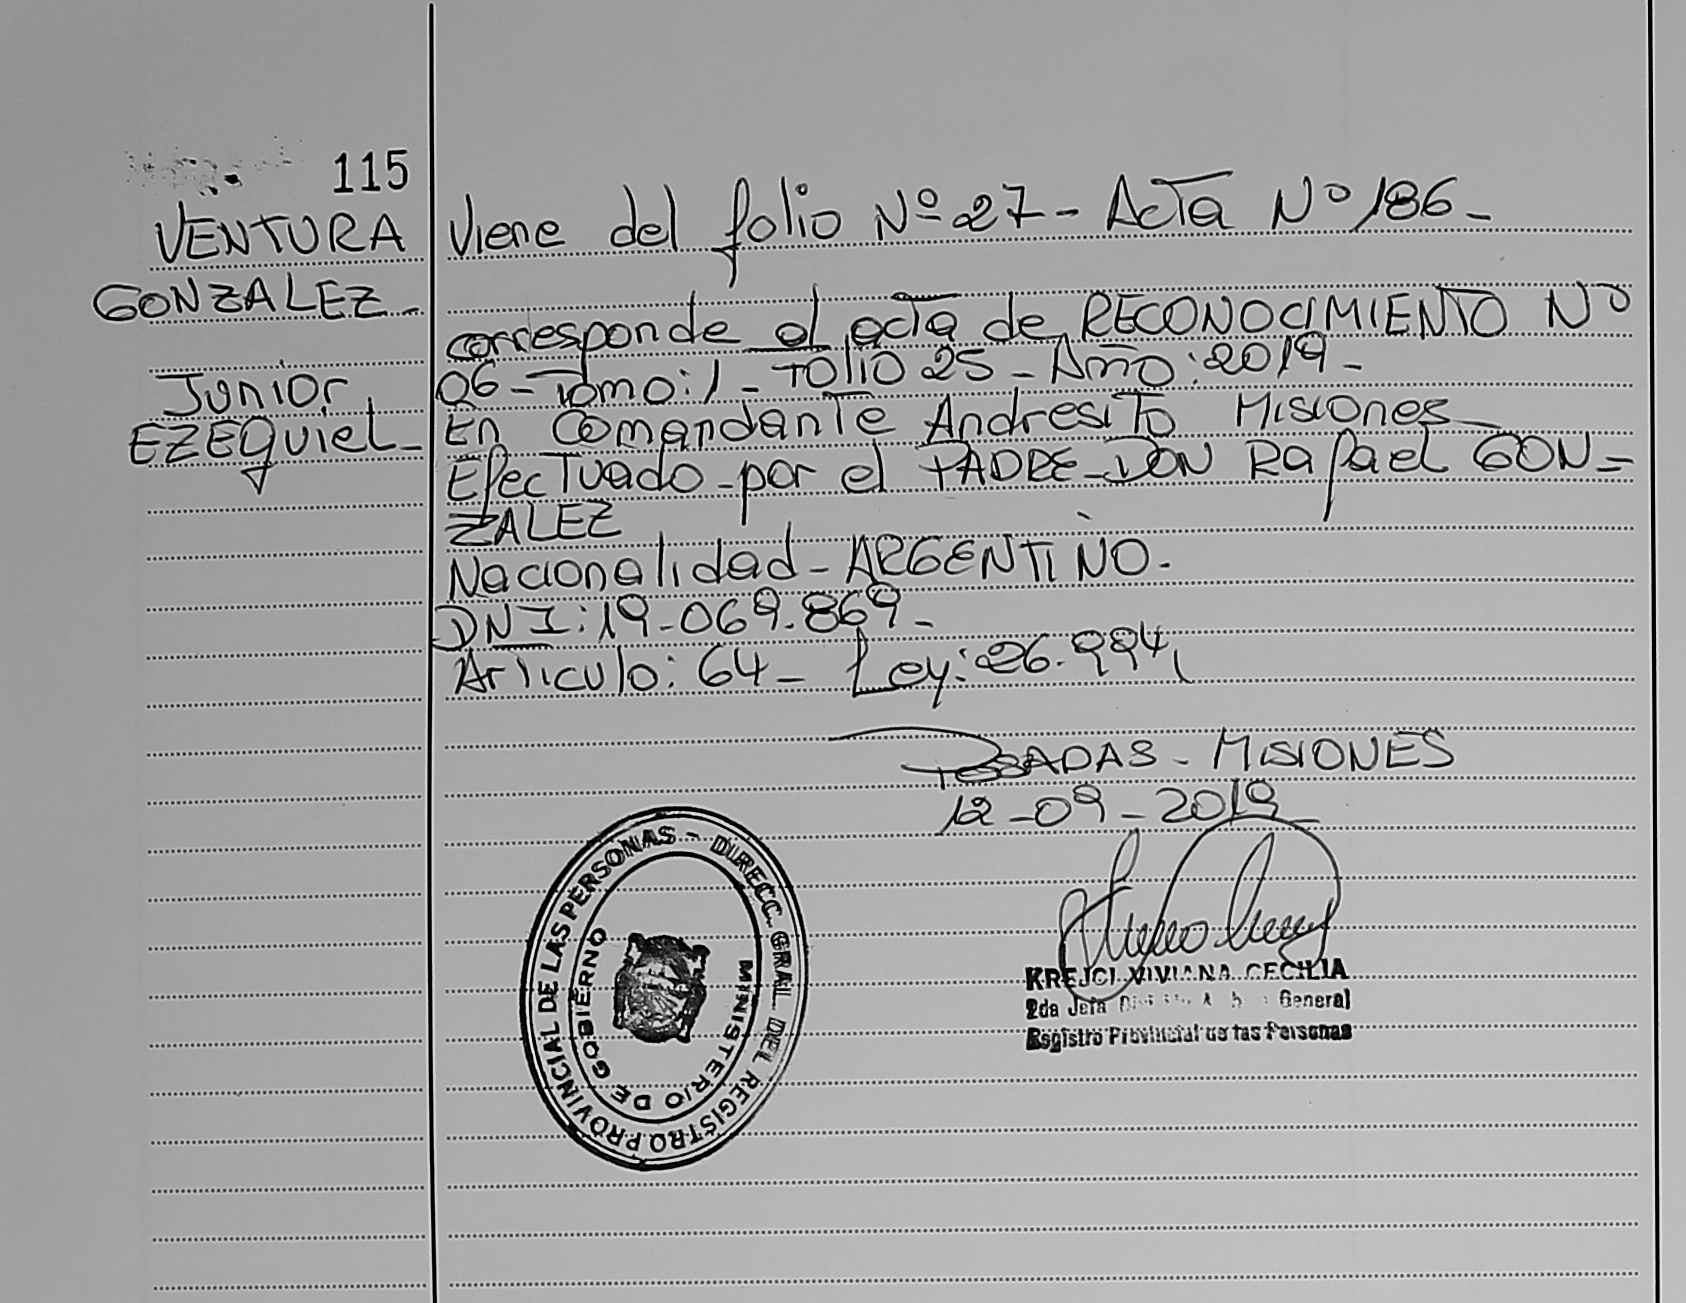 115
VENTURA
GONZALEZ-
Junior
EZEQUIEL-
Viene del folio Nº 27 - Acta Nº 186 -
corresponde al acta de RECONOCIMIENTO Nº
06 - Tomo: 1 - Folio 25 - Año: 2019 -
En Comandante Andresito Misiones
Efectuado - por el PADRE - DON Rafael GON=
ZALEZ
Nacionalidad - ARGENTINO.
DNI: 19-069.869 -
Articulo: 64 - Ley: 26.994
POSADAS - MISIONES
12-09-2019
REGISTRO PROVINCIAL DE LAS PERSONAS - DIRECC. GRAL. DEL
MINISTERIO DE GOBIERNO
KREJCI VIVIANA CECILIA
2da Jefa General
Registro Provincial de las Personas